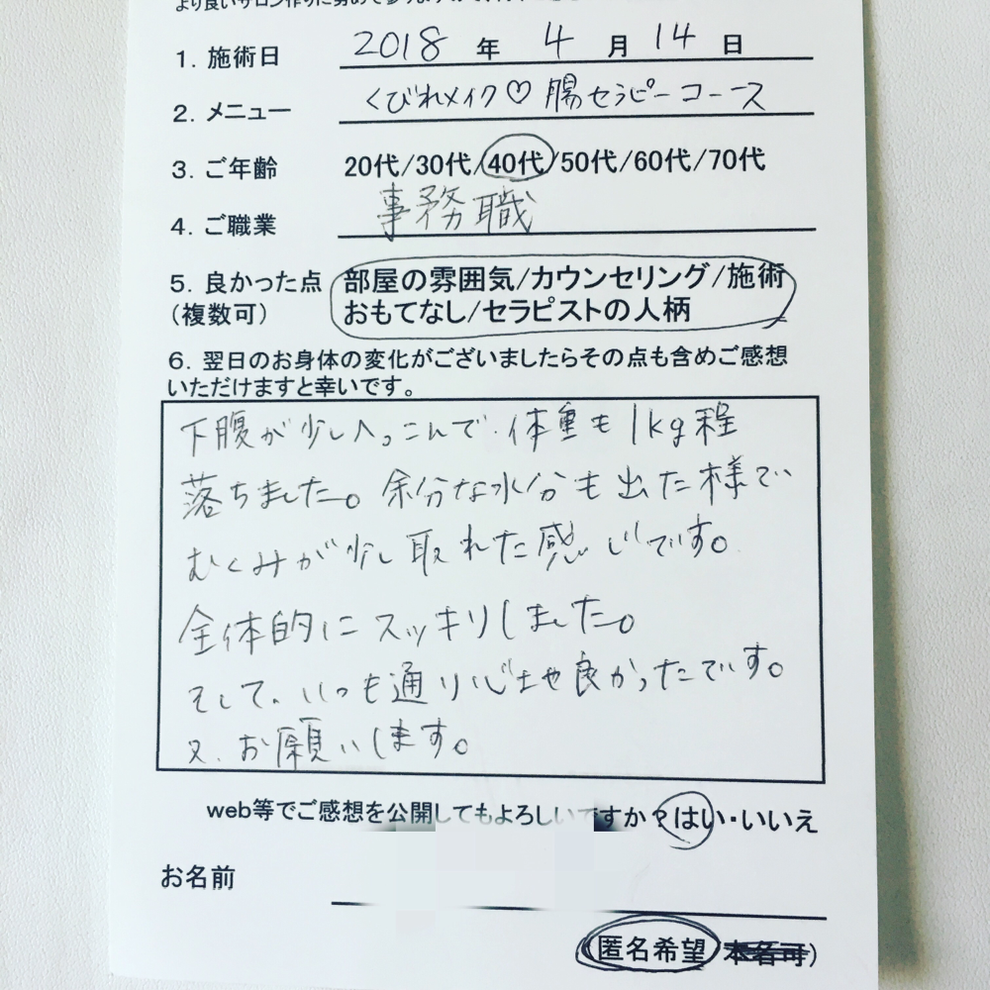 1. 施術日 2018 年 4 月 14 日
2. メニュー くびれメイク♡腸セラピーコース
3. ご年齢 20代/30代/40代/50代/60代/70代
4. ご職業 事務職
5. 良かった点 部屋の雰囲気/カウンセリング/施術
(複数可) おもてなし/セラピストの人柄
6. 翌日のお身体の変化がございましたらその点も含めご感想
いただけますと幸いです。
下腹が少しへっこんで、体重も1kg程
落ちました。余分な水分も出た様で
むくみが少し取れた感じです。
全体的にスッキリしました。
そして、いつも通り心地良かったです。
又、お願いします。
web等でご感想を公開してもよろしいですか?はい・いいえ
お名前
匿名希望 本名可)